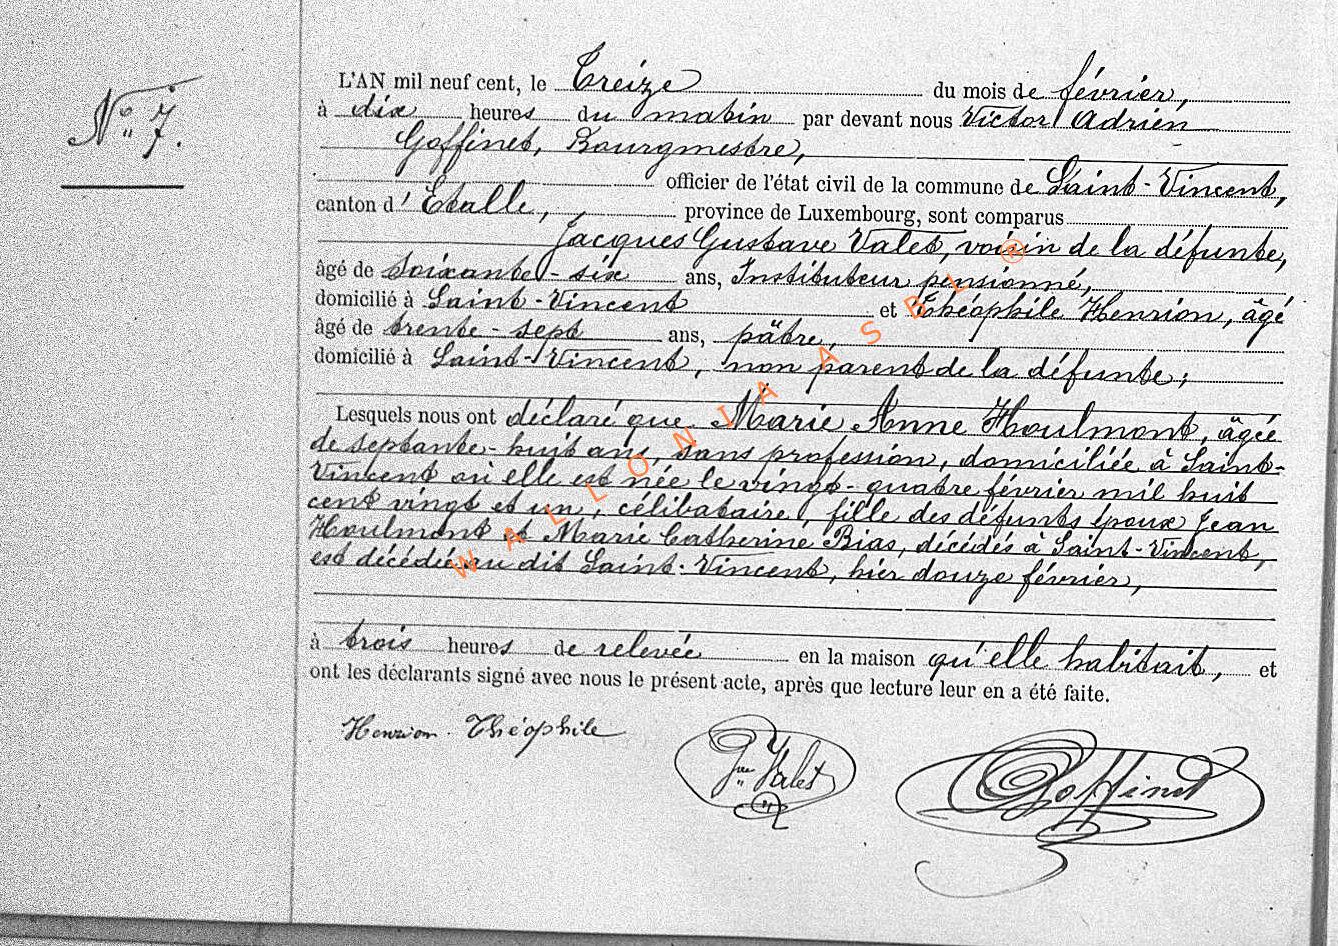 N° 7.
L'AN mil neuf cent, le Treize du mois de février,
à dix heures du matin par devant nous Victor Adrien
Goffinet, Bourgmestre,
officier de l'état civil de la commune de Saint-Vincent,
canton d'Etalle, province de Luxembourg, sont comparus
Jacques Gustave Valet, voisin de la défunte,
âgé de soixante-six ans, Instituteur pensionné,
domicilié à Saint-Vincent et Théophile Henrion, âgé
âgé de trente-sept ans, pâtre,
domicilié à Saint-Vincent, non parent de la défunte;
Lesquels nous ont déclaré que Marie Anne Houlmont, âgée
de septante-huit ans, sans profession, domiciliée à Saint-
Vincent où elle est née le vingt-quatre février mil huit
cent vingt et un, célibataire, fille des défunts époux Jean
Houlmont et Marie Catherine Bias, décédés à Saint-Vincent,
est décédée au dit Saint-Vincent, hier douze février,
à trois heures de relevée en la maison qu'elle habitait, et
ont les déclarants signé avec nous le présent acte, après que lecture leur en a été faite.
Henrion Théophile
Gve Valet
Goffinet
WALLONIA ASBL ®